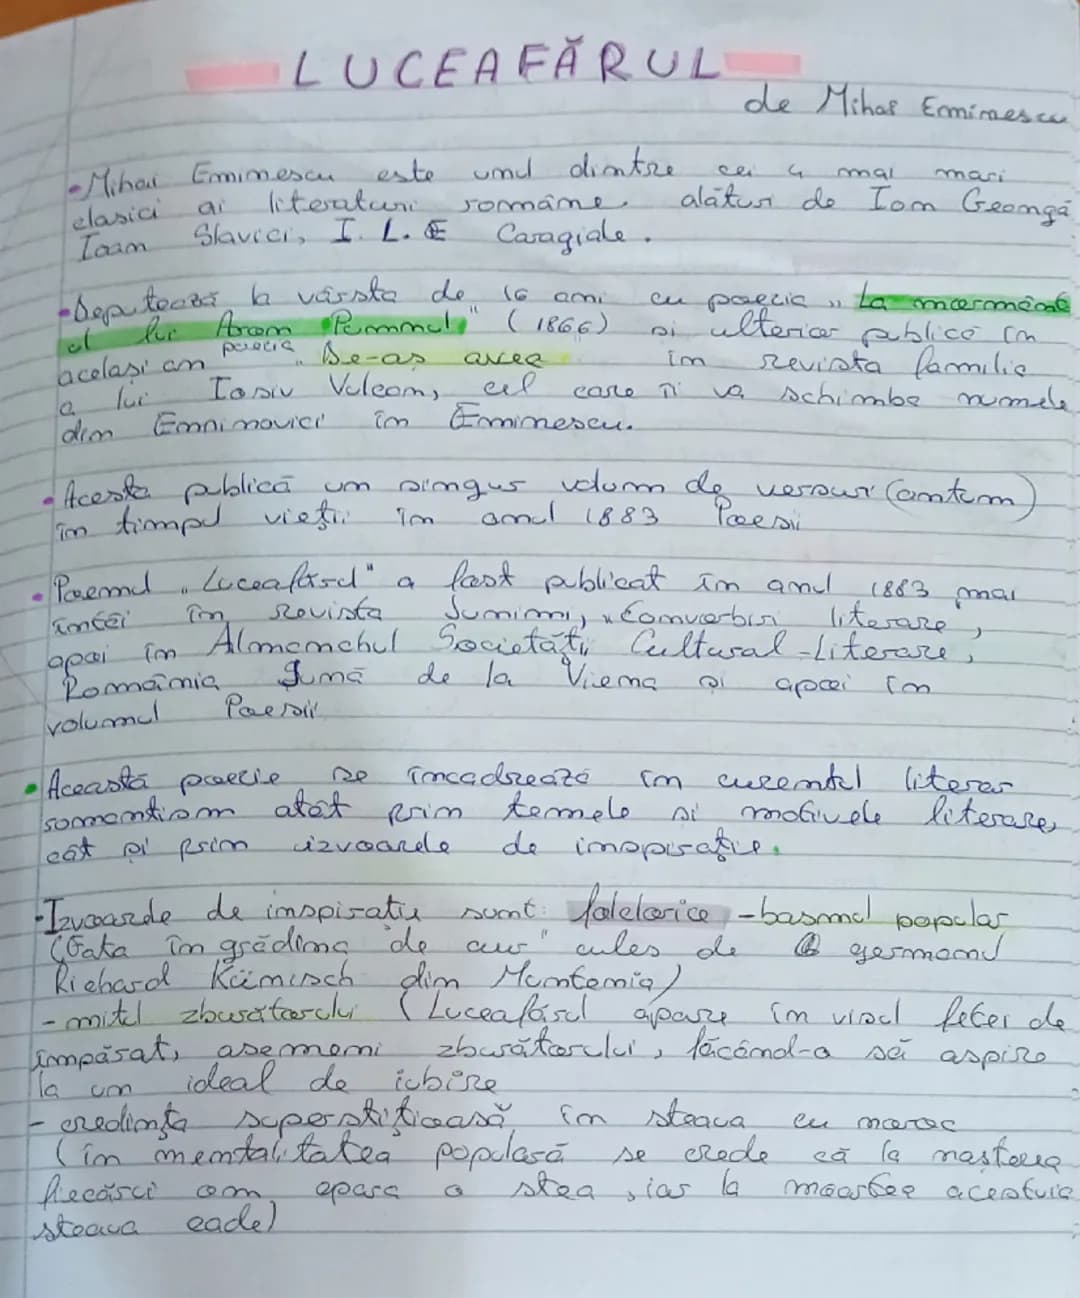 LUCEAFĂRUL
de Mihai Eminescu
- Mihai Eminescu este unul dintre cei 4 mai mari
clasici ai literaturii române alături de Ion Geangă
Ioan Slavici, I. L. Caragiale.
- Deputează la vârsta de 16 ani cu poezia „La mormânt
ul lui Aron Pumnul" (1866) și ulterior publică în
același an poezia „De-aș avea în revista familia
a lui Iosiv Vulcan, cel care îi va schimba numele
din Emninovici în Eminescu.
- Acesta publică un singur volum de versuri (antum)
în timpul vieții în anul 1883 Poesii
- Poemul „Luceafărul" a fost publicat în anul 1883 mai
întâi în revista Junimii, „Convorbiri literare,
apoi în Almanahul Societății Cultural-Literare,
România Jună de la Viena și apoi în
volumul Poesii
- Această poezie se încadrează în curentul literar
romantism atât prin temele și motivele literare,
cât și prin izvoarele de inspirație.
- Izvoarele de inspirație sunt: folclorice - basmul popular
(Fata în grădina de aur" cules de germanul
Richard Künisch din Muntenia)
- mitul zburătorului (Luceafărul apare în visul fetei de
împărat, asemeni zburătorului, făcând-o să aspire
la un ideal de iubire
- credința superstițioasă în steaua cu noroc
(în mentalitatea populară se crede că la nașterea
fiecărui om, apare o stea, iar la moartea acestuia
steaua cade)